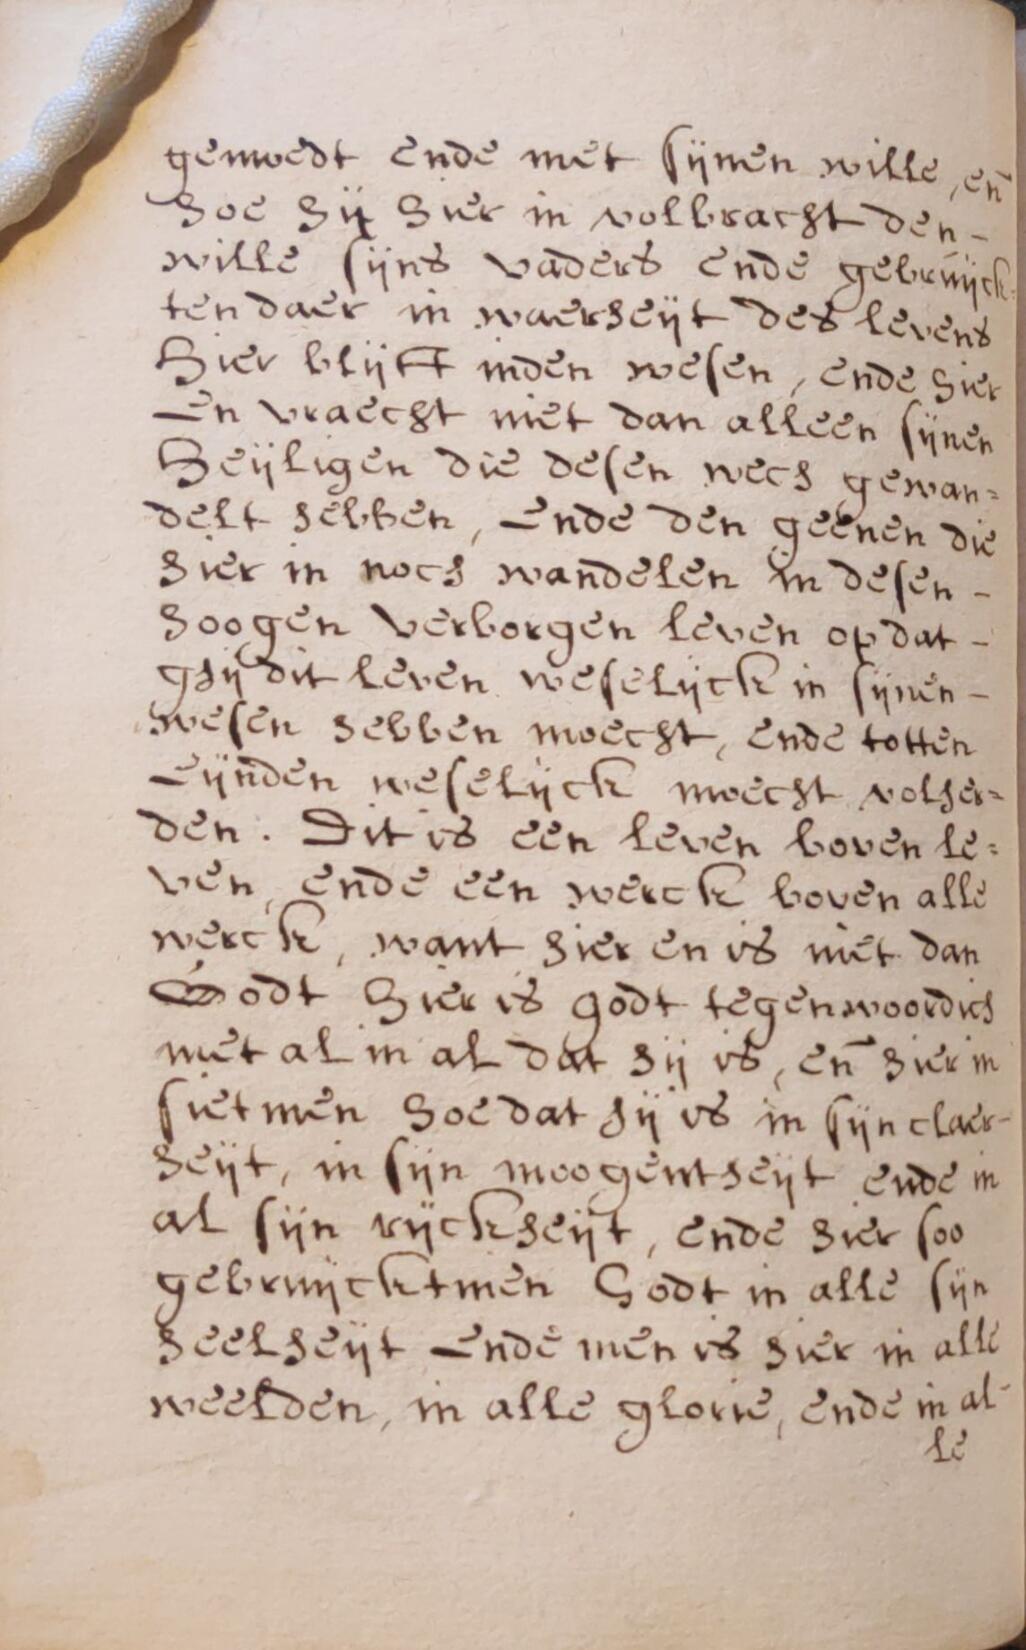 gemoedt ende met sijnen wille, en̄
hoe hij hier in volbracht den-
wille sijns vaders ende gebruijck=
ten daer in waerheijt des levens
Hier blijft inden wesen, ende hier
En vraecht niet dan alleen sijnen
Heijligen die desen wech gewan=
delt hebben, Ende den geenen die
hier in noch wandelen in desen-
hoogen verborgen leven op dat-
ghij dit leven weselijck in sijnen-
wesen hebben moecht, ende totten
Eijnden weselijck moecht volher=
den. Dit is een leven boven le=
ven, ende een werck boven alle
werck, want hier en is niet dan
Godt Hier is godt tegenwoordich
met al in al dat hij is, en̄ hier in
siet men hoe dat hij is in sijn claer-
heijt, in sijn moogentheijt ende in
al sijn rijckheijt, ende hier soo
gebruijckt men Godt in alle sijn
heelheijt Ende men is hier in alle
weelden, in alle glorie, ende in al-
le